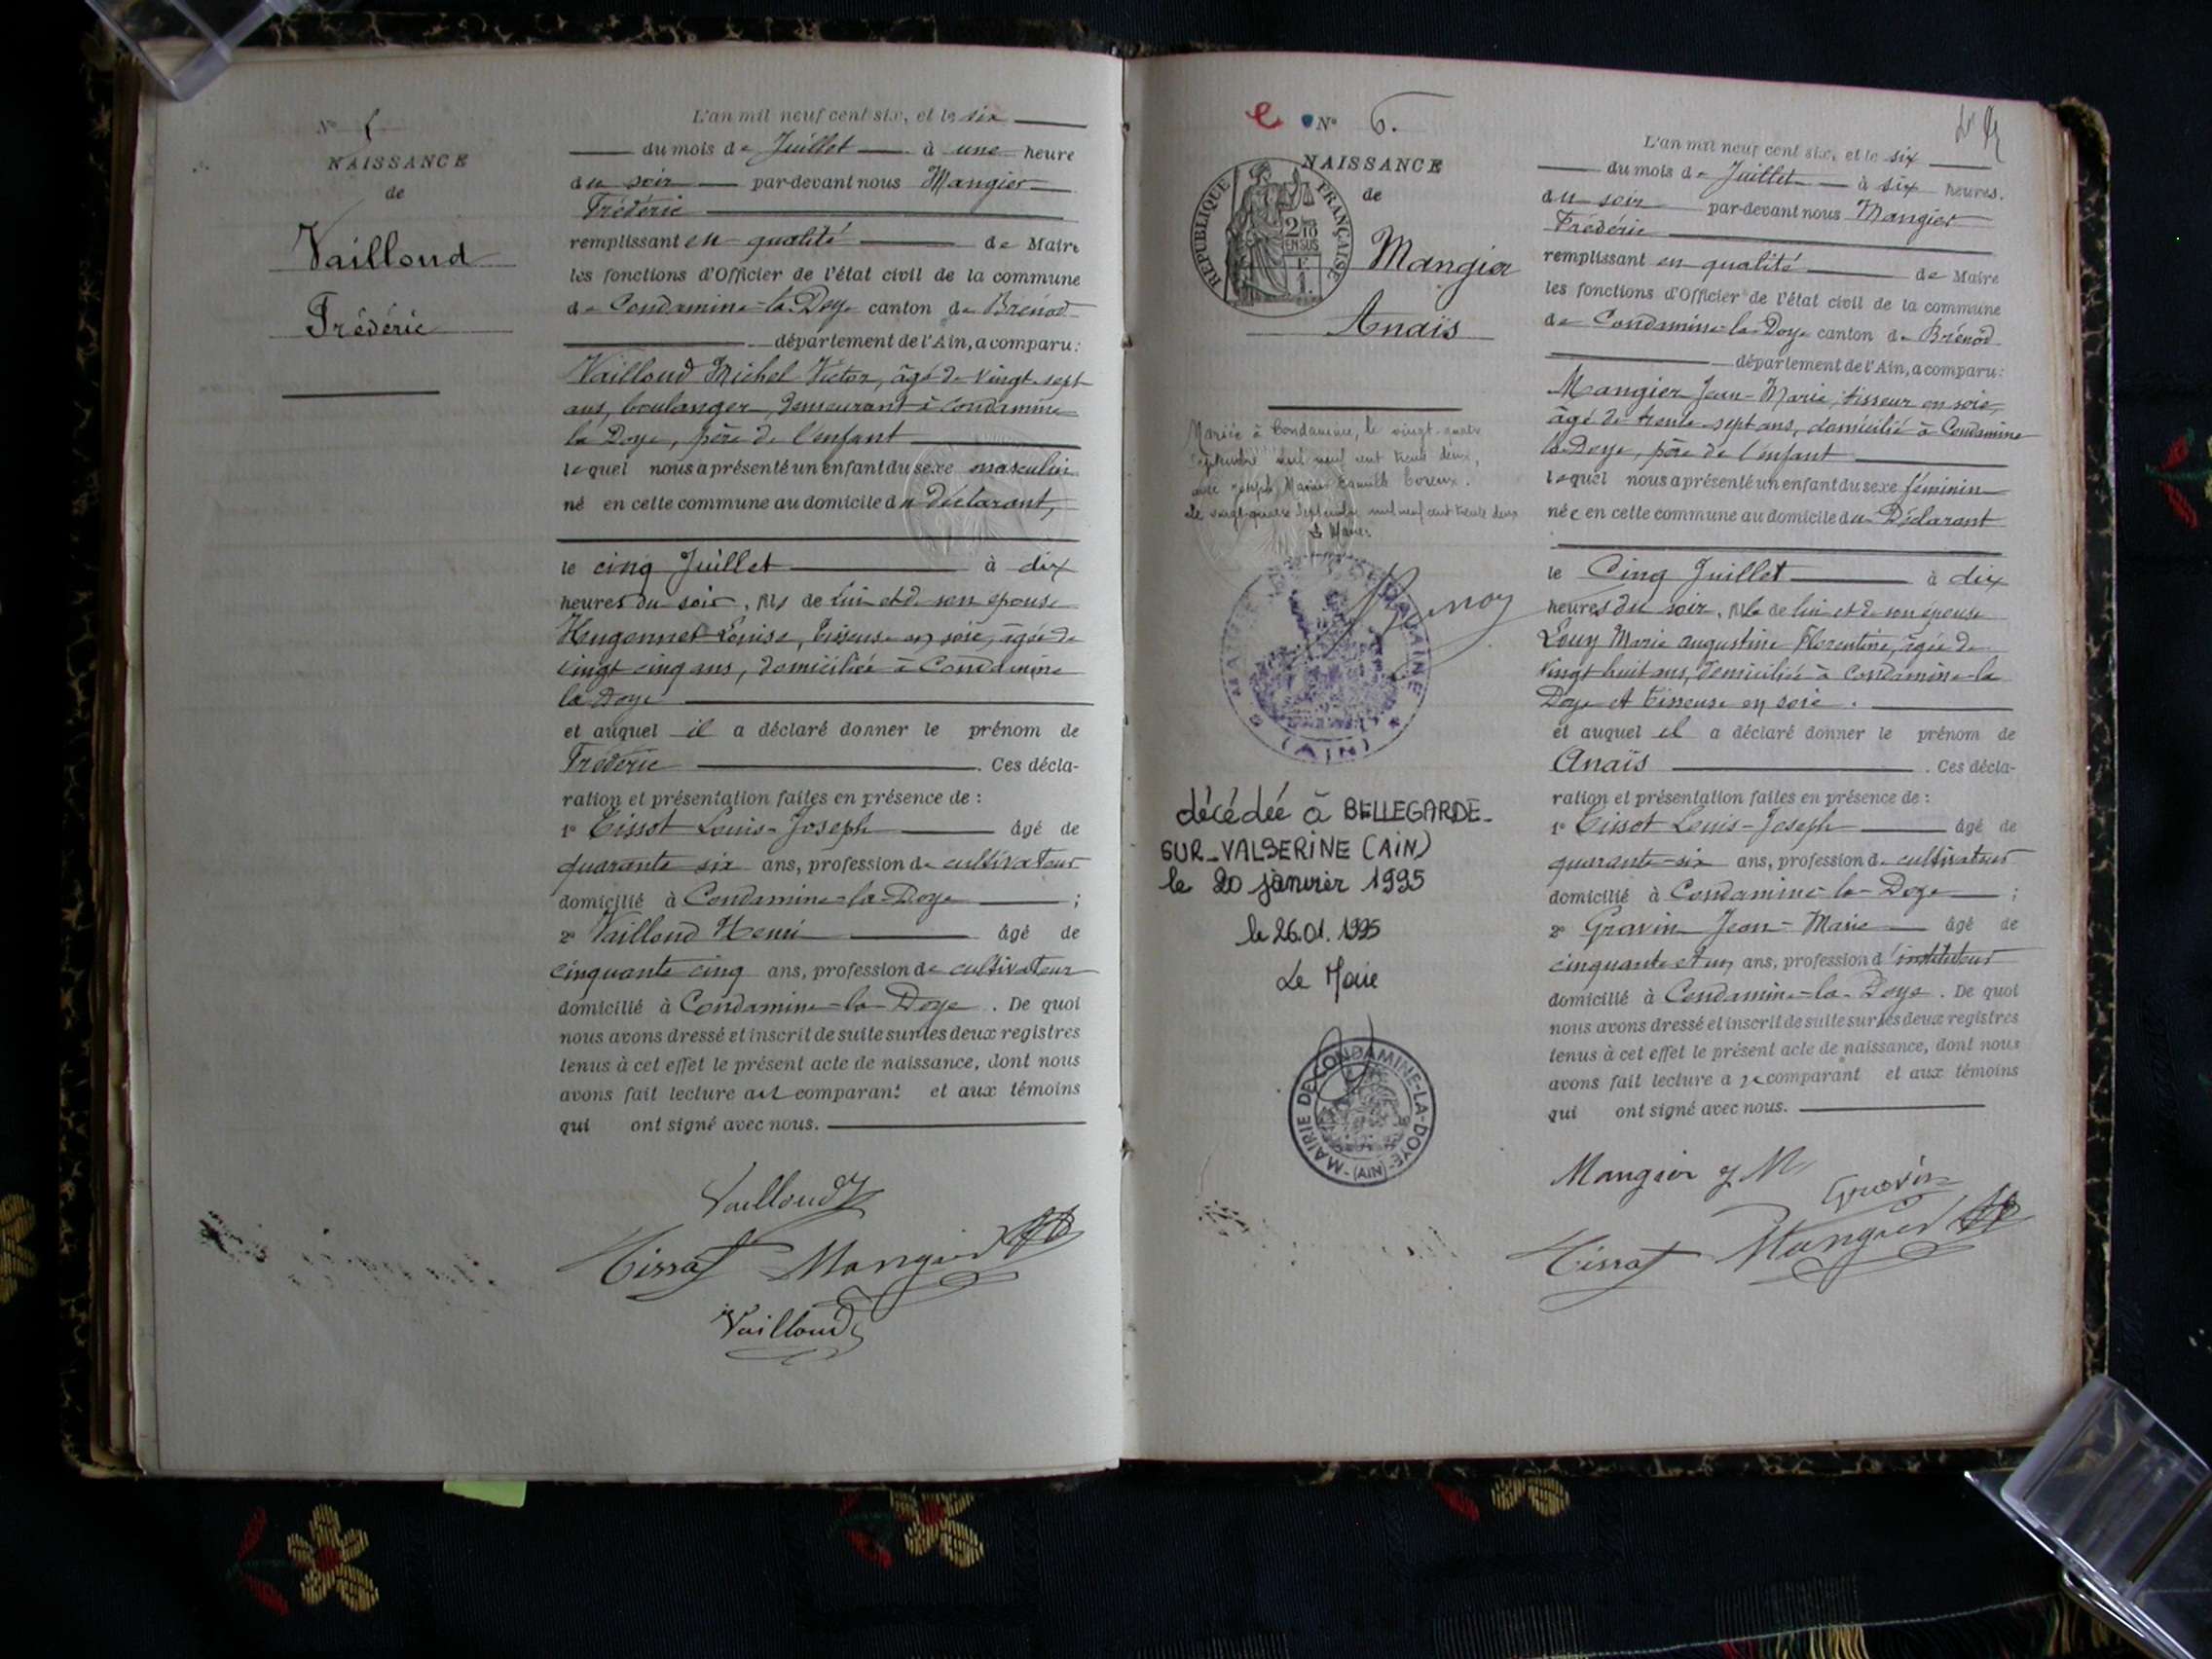 N° 5
NAISSANCE
de
Vailloud
Frédéric
L'an mil neuf cent six, et le six
du mois de Juillet à une heure
du soir par-devant nous Mangier
Frédéric
remplissant en qualité de Maire
les fonctions d'Officier de l'état civil de la commune
de Condamine-la-Doye canton de Brénod
département de l'Ain, a comparu:
Vailloud Michel Victor, âgé de vingt-sept
ans, boulanger, demeurant à Condamine
la Doye, père de l'enfant
lequel nous a présenté un enfant du sexe masculin
né en cette commune au domicile du déclarant,
le cinq Juillet à dix
heures du soir, fils de lui et de son épouse
Hugonnet Louise, tisseuse en soie, âgée de
vingt cinq ans, domiciliée à Condamine
la Doye
et auquel il a déclaré donner le prénom de
Frédéric. Ces décla-
ration et présentation faites en présence de :
1° Tissot Louis-Joseph âgé de
quarante six ans, profession de cultivateur
domicilié à Condamine-la-Doye ;
2° Vailloud Henri âgé de
cinquante cinq ans, profession de cultivateur
domicilié à Condamine-la-Doye. De quoi
nous avons dressé et inscrit de suite sur les deux registres
tenus à cet effet le présent acte de naissance, dont nous
avons fait lecture au comparant et aux témoins
qui ont signé avec nous.
Vailloud
Tissot Mangier
Vailloud
N° 6.
NAISSANCE
de
RÉPUBLIQUE FRANÇAISE
2/10
EN SUS
F.
1.
Mangier
Anaïs
Mariée à Condamine, le vingt-quatre
Septembre mil neuf cent trente deux,
avec Joseph Marius Camille
Le vingt-quatre Septembre mil neuf cent trente deux
Le Maire
(AIN)
décédée à BELLEGARDE-
SUR-VALSERINE (AIN)
le 20 janvier 1995
le 26.01.1995
Le Maire
MAIRIE DE CONDAMINE-LA-DOYE
(AIN)
L'an mil neuf cent six, et le six
du mois de Juillet à six heures.
du soir par-devant nous Mangier
Frédéric
remplissant en qualité de Maire
les fonctions d'Officier de l'état civil de la commune
de Condamine-la-Doye canton de Brénod
département de l'Ain, a comparu:
Mangier Jean-Marie, tisseur en soie,
âgé de trente-sept ans, domicilié à Condamine
la Doye, père de l'enfant
lequel nous a présenté un enfant du sexe féminin
née en cette commune au domicile du Déclarant
le Cinq Juillet à dix
heures du soir, fille de lui et de son épouse
Marie augustine Florentine, âgée de
vingt huit ans, domiciliée à Condamine-la
Doye et tisseuse en soie.
et auquel il a déclaré donner le prénom de
Anaïs. Ces décla-
ration et présentation faites en présence de :
1° Tissot Louis-Joseph âgé de
quarante-six ans, profession de cultivateur
domicilié à Condamine-la-Doye ;
2° Gravin Jean-Marie âgé de
cinquante et un ans, profession d'instituteur
domicilié à Condamine-la-Doye. De quoi
nous avons dressé et inscrit de suite sur les deux registres
tenus à cet effet le présent acte de naissance, dont nous
avons fait lecture au comparant et aux témoins
qui ont signé avec nous.
Mangier J M
Gravin
Tissot Mangier